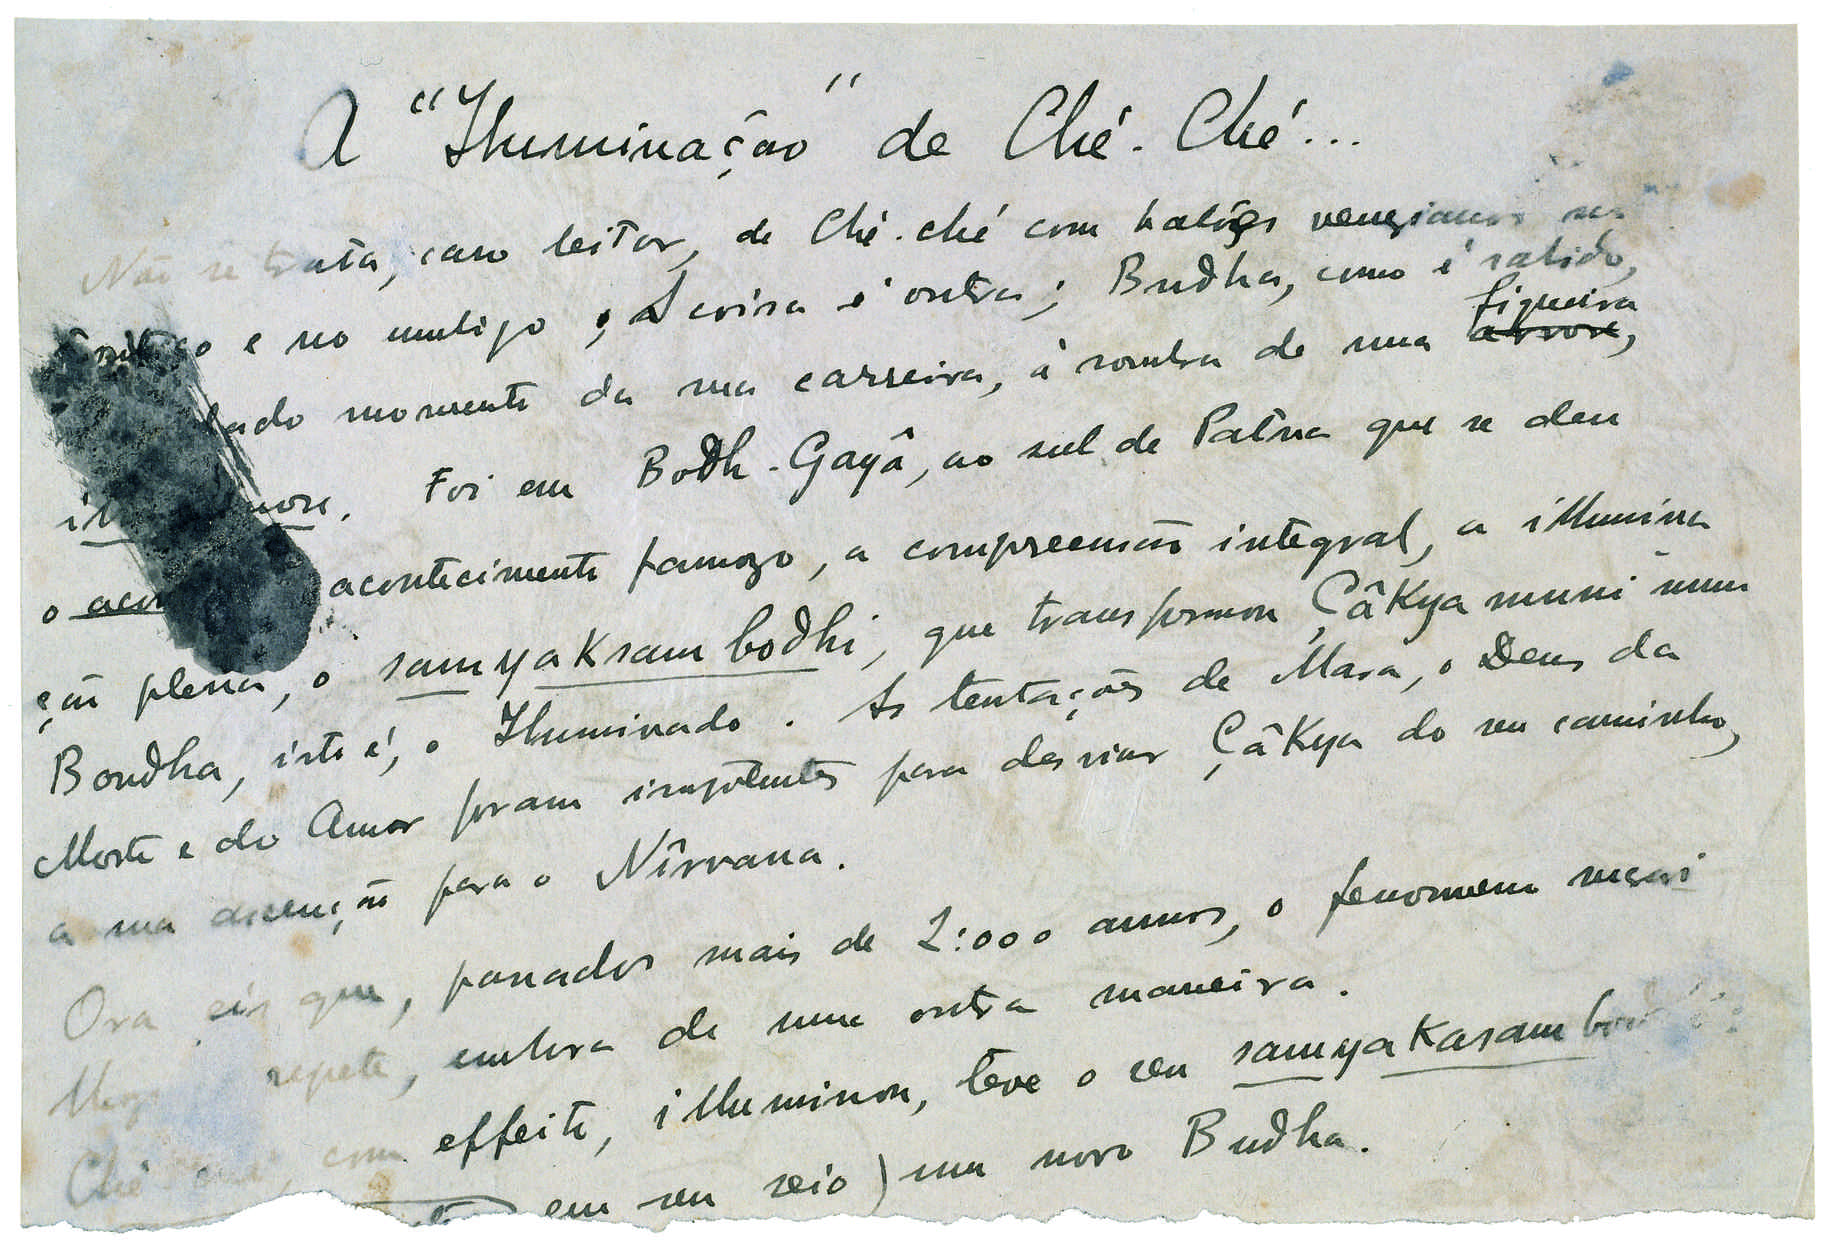 A "Illuminação" de Ché-Ché...
Não se trata, caro leitor, de Ché-ché com balões venezianos no
e no umbigo; A coisa é outra; Budha, como é sabido,
lado momento da sua carreira, à sombra de uma figueira
arvore,
Foi em Bodh-Gayâ, ao sul de Patna que se deu
o acon acontecimento famozo, a compreensão integral, a illumina
ção plena, o samyaksambodhi, que transformou Çâkya muni num
Boudha, isto é, o Illuminado. As tentações de Mara, o Deus da
Morte e do Amor foram impotentes para desviar Çâkya do seu caminho,
a sua ascenção para o Nîrvana.
Ora eis que, passados mais de 2:000 annos, o fenomeno
repete, embora de uma outra maneira.
Ché-ché, com effeito, illuminou, teve o seu samyakasambodhi
em seu seio) um novo Budha.